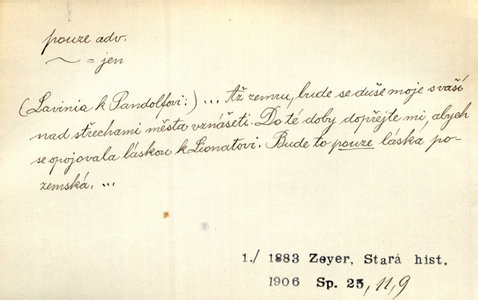 pouze adv.
~ = jen
(Lavinia k Pandolfovi:) ... Až zemru, bude se duše moje s vaší
nad střechami města vznášeti. Do té doby dopřejte mi, abych
se opojovala láskou k Lionatovi. Bude to pouze láska po-
zemská. ...
1./ 1883 Zeyer, Stará hist.
1906 Sp. 25, 11, 9